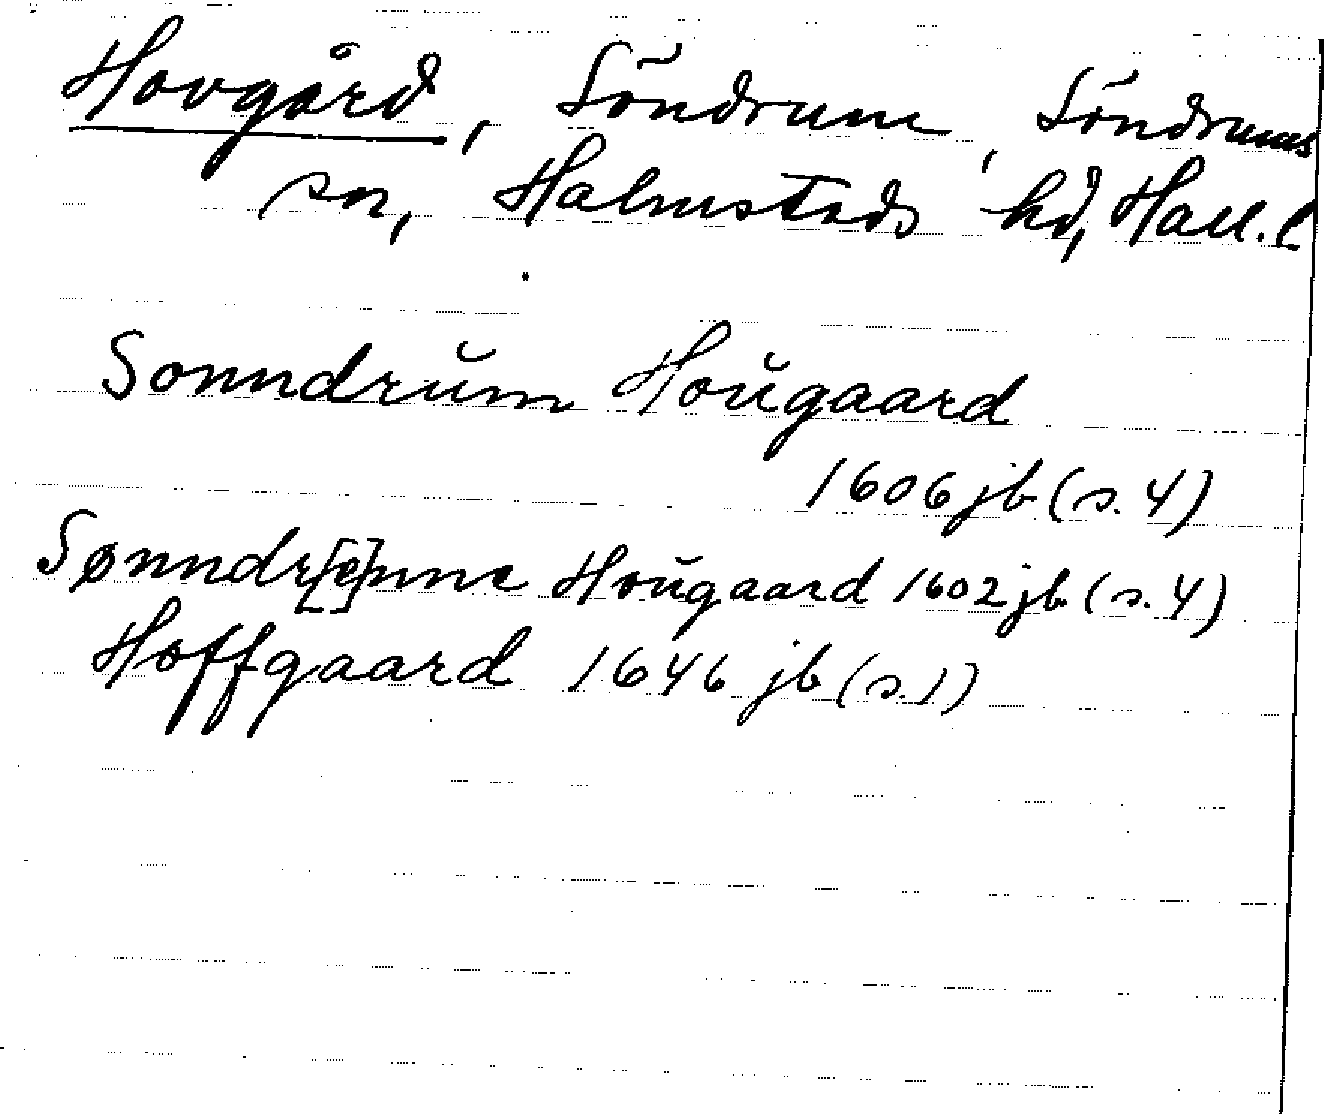 Hovgård, Söndrum, Söndrums
sn, Halmstads hd, Hall. l
Sonndrŭm Hoŭgaard
1606 jb (s. 4)
Sønndr[e]mne Hoŭgaard 1602 jb (s. 4)
Hoffgaard 1646 jb (s. 1)